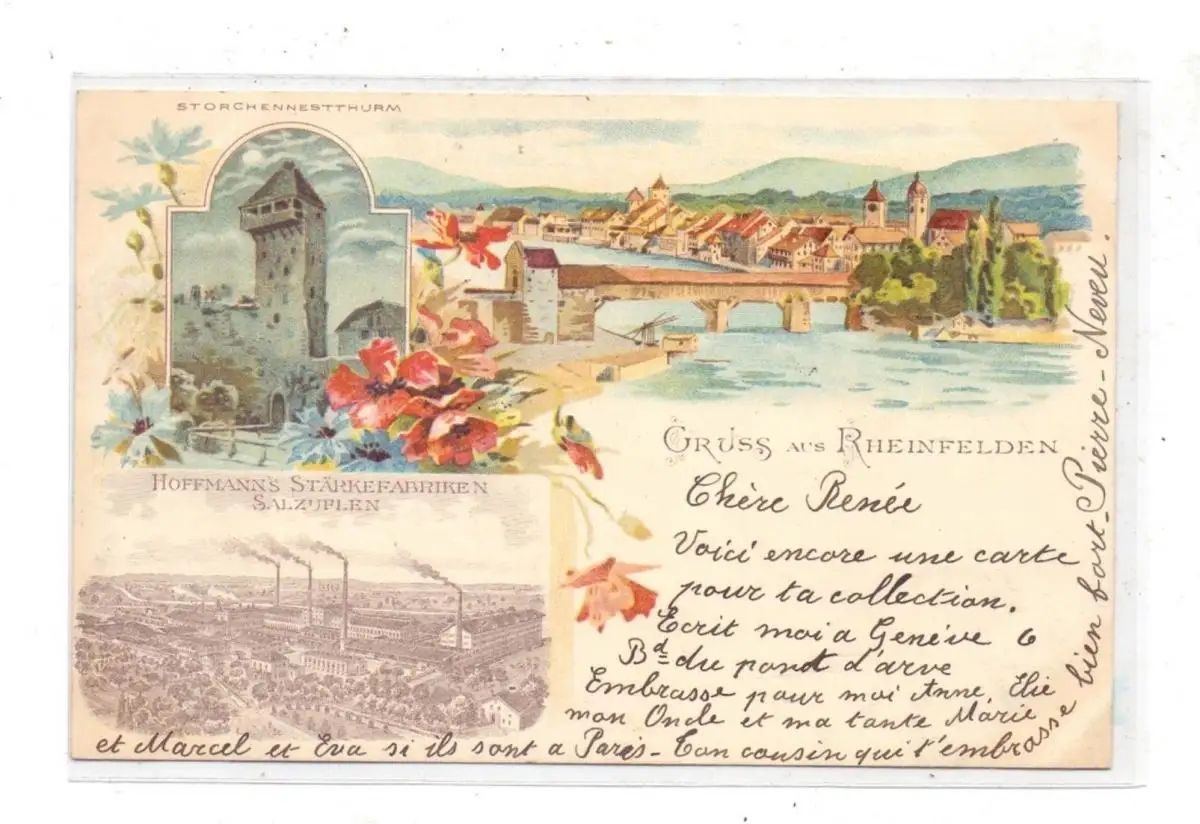 STORCHENNESTTHURM
GRUSS AUS RHEINFELDEN
HOFFMANN'S STÄRKEFABRIKEN
SALZUFLEN
Chère Renée
Voici encore une carte
pour ta collection.
Ecrit moi a Genève 6
Bd du pont d'arve
Embrasse pour moi Anne, Elie
mon Oncle et ma tante Marie
et Marcel et Eva si ils sont a Paris - Ton cousin qui t'embrasse
bien fort - Pierre - Neveu.